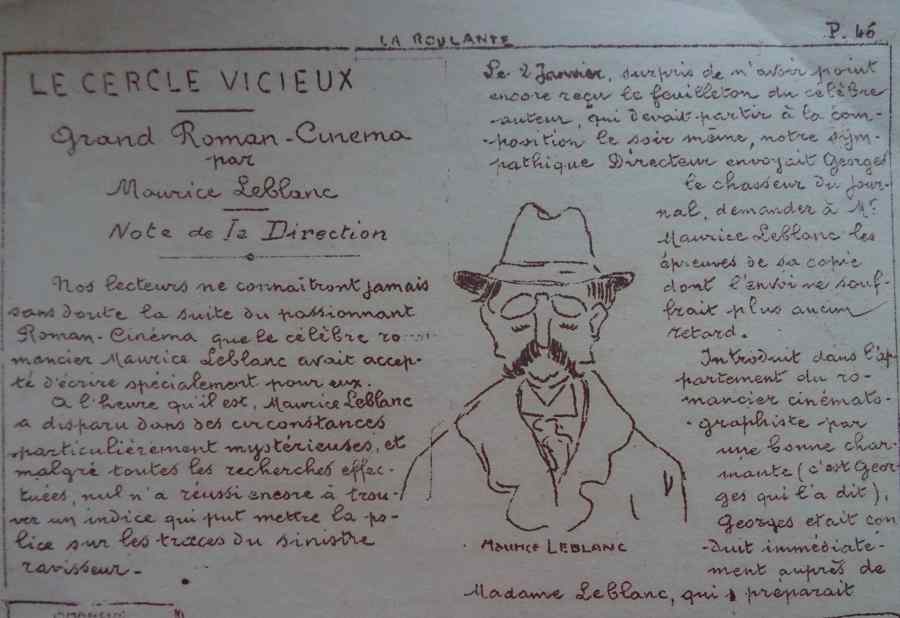 LA ROULANTE
P. 46
LE CERCLE VICIEUX
Grand Roman-Cinema
par
Maurice Leblanc
Note de la Direction
Nos lecteurs ne connaitront jamais
sans doute la suite du passionnant
Roman-Cinéma que le célèbre ro-
mancier Maurice Leblanc avait accep-
té d'écrire spécialement pour eux.
A l'heure qu'il est, Maurice Leblanc
a disparu dans des circonstances
particulièrement mystérieuses, et
malgré toutes les recherches effec-
tuées, nul n'a réussi encore à trou-
ver un indice qui put mettre la po-
lice sur les traces du sinistre
ravisseur.-
Le 2 Janvier, surpris de n'avoir point
encore reçu le feuilleton du célèbre
auteur, qui devait partir à la com-
position le soir même, notre sym-
pathique Directeur envoyait Georges
le chasseur du jour-
nal, demander à Mr
Maurice Leblanc les
épreuves de sa copie
dont l'envoi ne souf-
frait plus aucun
retard.
Introduit dans l'ap-
partement du ro-
mancier cinémato-
graphiste par
une bonne char-
mante (c'est Geor-
ges qui l'a dit),
Georges etait con
duit immédiate-
ment auprès de
Madame Leblanc, qui préparait
MAURICE LEBLANC